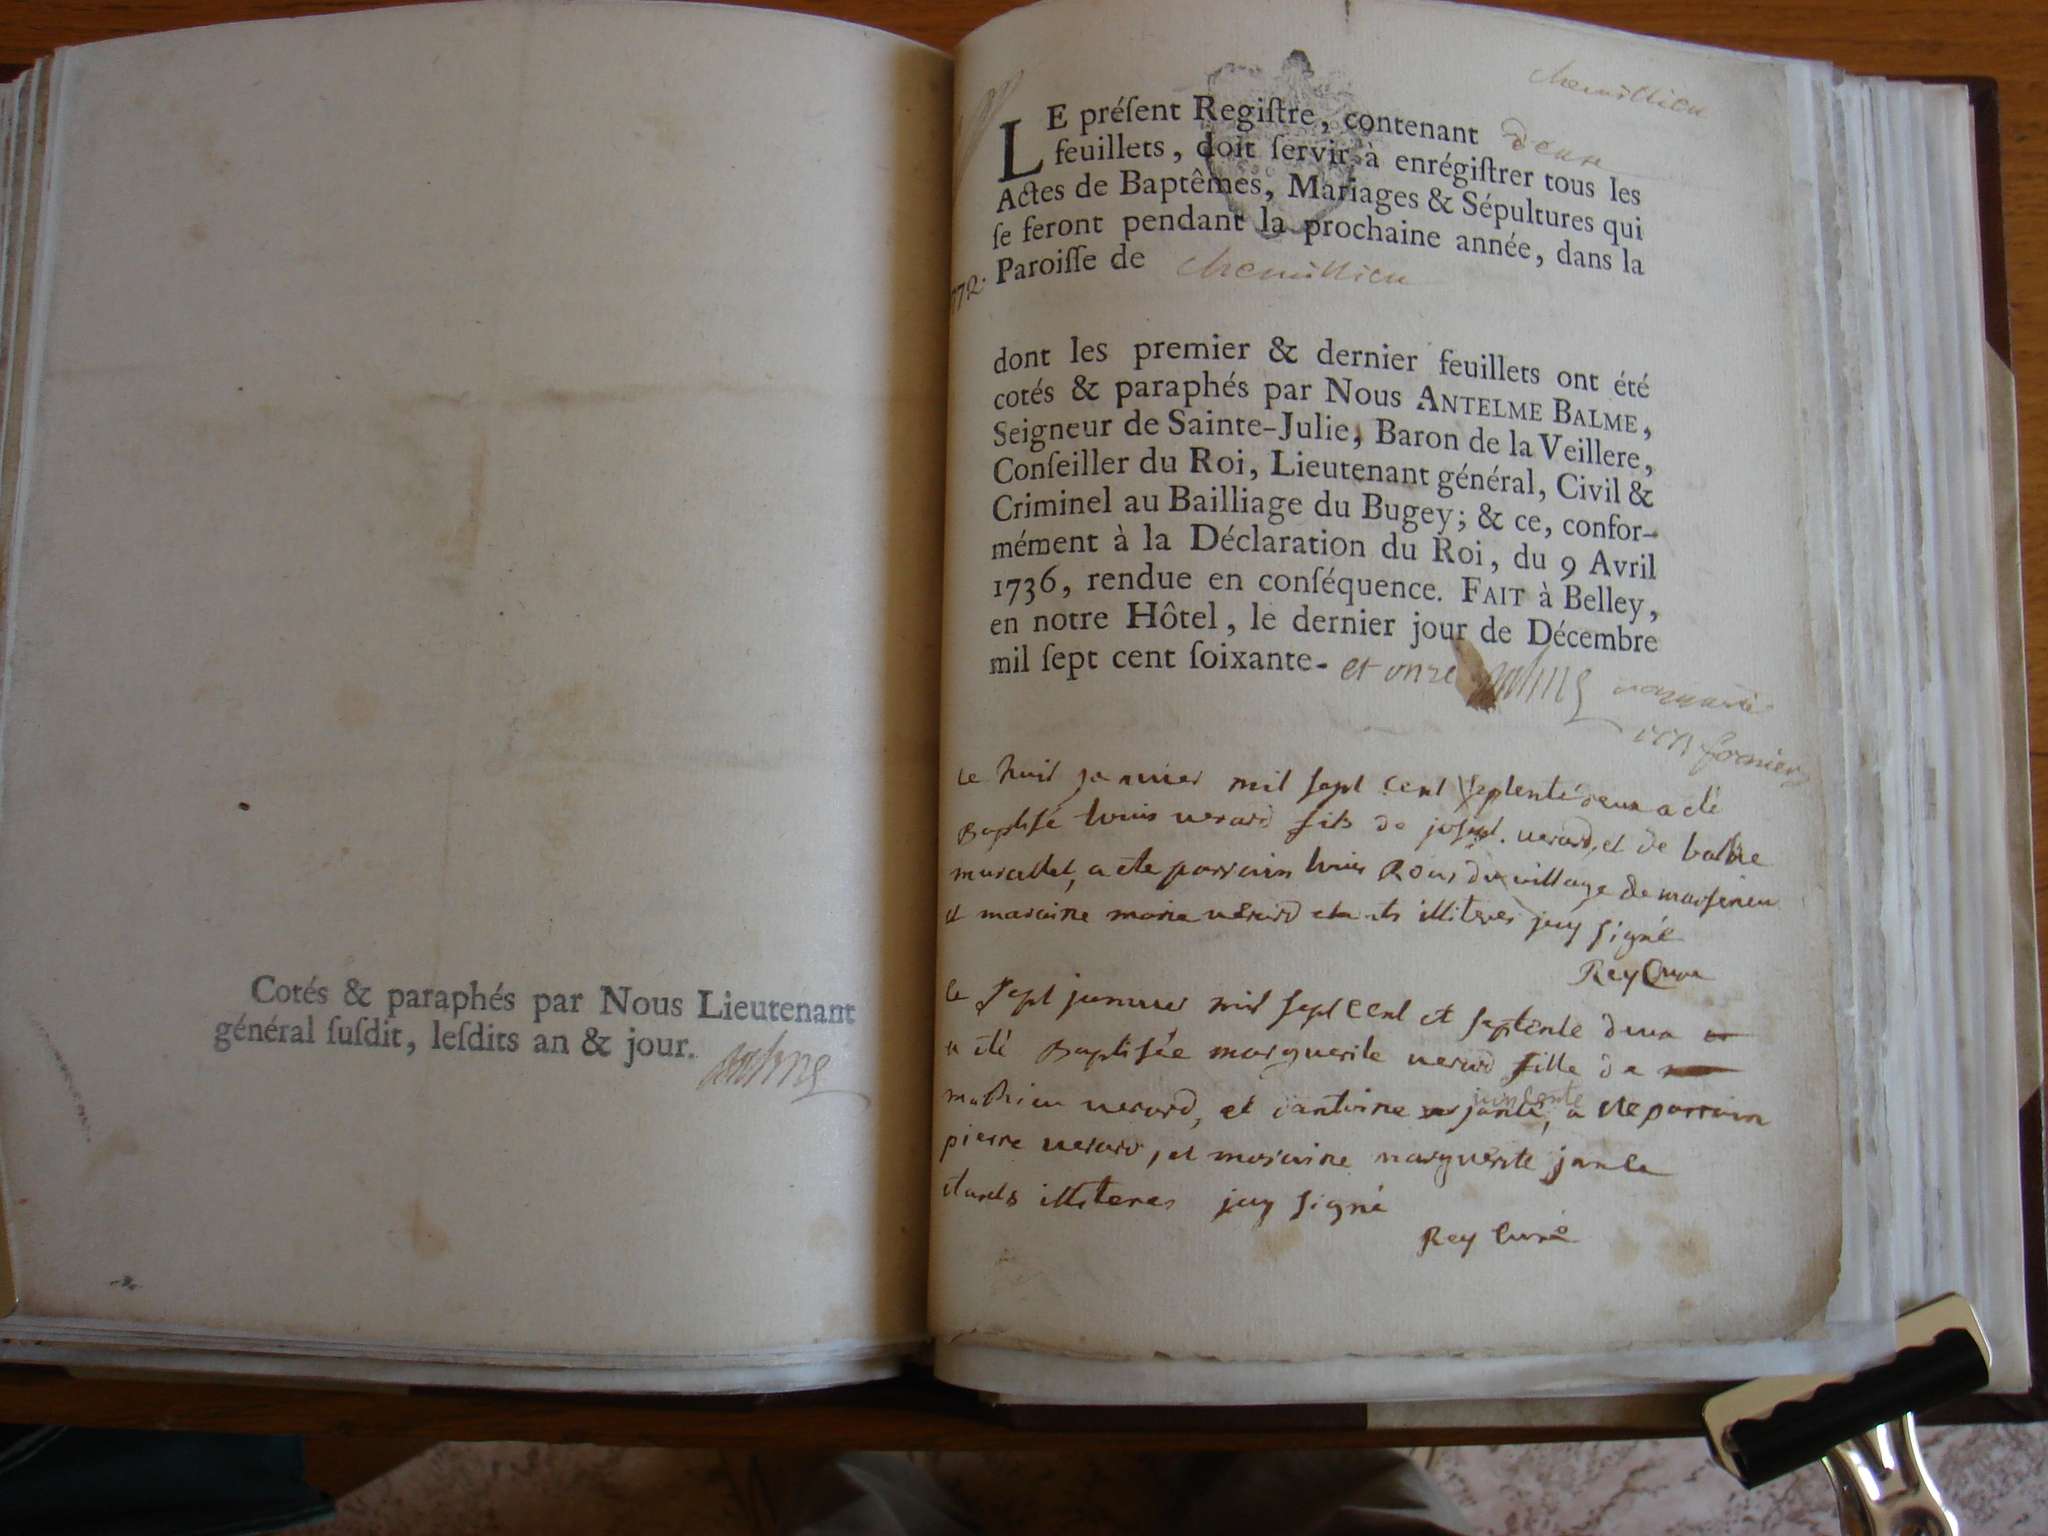 Cotés & paraphés par Nous Lieutenant
général ſuſdit, leſdits an & jour.
chemillieu
LE préſent Regiſtre, contenant deux
feuillets, doit ſervir à enrégiſtrer tous les
Actes de Baptêmes, Mariages & Sépultures qui
ſe feront pendant la prochaine année, dans la
1772. Paroiſſe de chemillieu
dont les premier & dernier feuillets ont été
cotés & paraphés par Nous ANTELME BALME,
Seigneur de Sainte-Julie, Baron de la Veillere,
Conſeiller du Roi, Lieutenant général, Civil &
Criminel au Bailliage du Bugey; & ce, confor-
mément à la Déclaration du Roi, du 9 Avril
1736, rendue en conſéquence. FAIT à Belley,
en notre Hôtel, le dernier jour de Décembre
mil ſept cent ſoixante- et onze
le huit janvier mil sept cent septente deux a été
Baptisé louis verard fils de joseph verard, et de
a ete parrain louis du village de
et maraine marie verard etants illiteres jay signé
Rey Curé
le sept janvier mil sept cent et septente deux
a été Baptisée marguerite verard fille de
mathieu verard, et dantoine jante, a ete parrain
pierre verard, et maraine marguerite
etants illiteres jay signé
Rey Curé